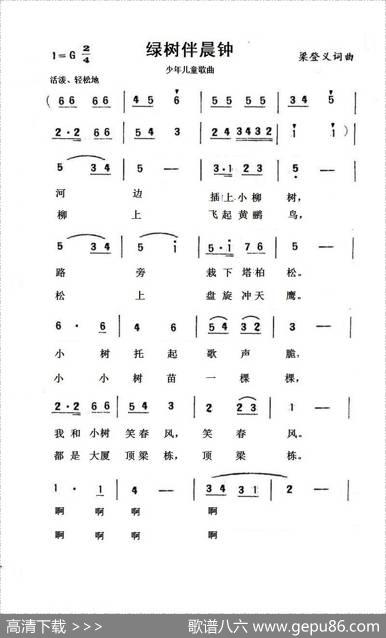 绿树伴晨钟
1=G 2/4
少年儿童歌曲
梁登义词曲
活泼、轻松地
( 66 66 | 45 6 | 55 55 | 34 5 |
2·2 66 | 54 3 | 24 3432 | 1 1 ) |
5 34 | 5 — | 3·1 23 | 5 — |
河 边 插上小柳树,
柳 上 飞起黄鹂鸟,
5 34 | 5 i | 5·i 76 | 5 — |
路 旁 栽下塔柏松。
松 上 盘旋冲天鹰。
6 · 6 | 4 6 | 54 32 | 3 — |
小 树 托 起 歌 声 脆,
小 小 树 苗 一 棵 棵,
2·2 66 | 54 3 | 2 23 | 1 — |
我和小树 笑春风, 笑 春 风。
都是大厦 顶梁栋, 顶 梁 栋。
1 · 1 | 4 — | 34 31 | 2 — |
啊 啊 啊 啊
啊 啊 啊 啊
高清下载 >>>
歌谱八六 www.gepu86.com